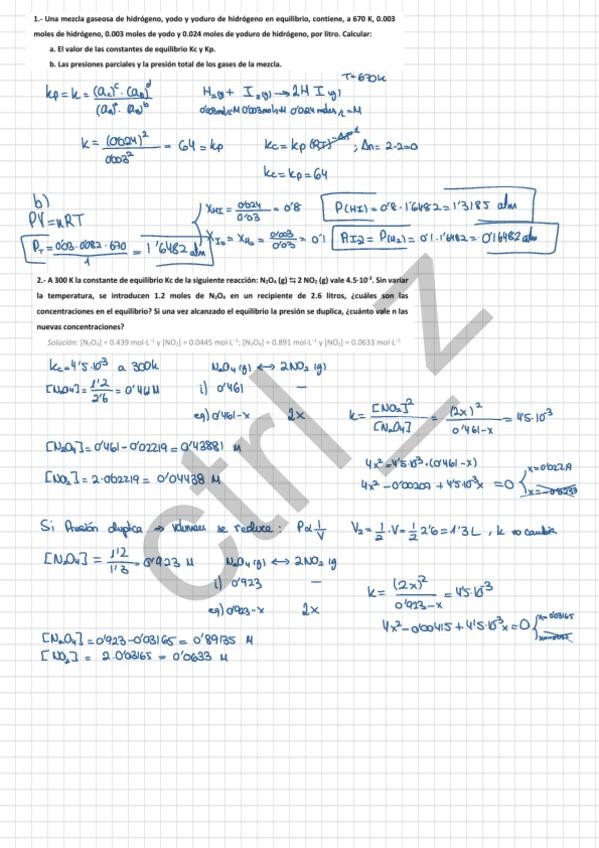 1.- Una mezcla gaseosa de hidrógeno, yodo y yoduro de hidrógeno en equilibrio, contiene, a 670 K, 0.003
moles de hidrógeno, 0.003 moles de yodo y 0.024 moles de yoduro de hidrógeno, por litro. Calcular:
a. El valor de las constantes de equilibrio Kc y Kp.
b. Las presiones parciales y la presión total de los gases de la mezcla.
T=670k
kp = k = (ac)^c · (aD)^d / (aA)^a · (aB)^b
H2(g) + I2(g) → 2H I(g)
k = (0'024)² / 0'003² = 64 = kp
kc = kp (RT)^-Δn ; Δn = 2-2=0
kc = kp = 64
b)
PV = nRT
PT = 0'03·0'082·670 / 1 = 1'6482 atm
XHI = 0'024 / 0'03 = 0'8
P(HI) = 0'8 · 1'6482 = 1'3185 atm
XI2 = XH2 = 0'003 / 0'03 = 0'1
P(I2) = P(H2) = 0'1 · 1'6482 = 0'16482 atm
2.- A 300 K la constante de equilibrio Kc de la siguiente reacción: N₂O₄ (g) ⇆ 2 NO₂ (g) vale 4.5·10⁻³. Sin variar
la temperatura, se introducen 1.2 moles de N₂O₄ en un recipiente de 2.6 litros, ¿cuáles son las
concentraciones en el equilibrio? Si una vez alcanzado el equilibrio la presión se duplica, ¿cuánto vale n las
nuevas concentraciones?
Solución: [N₂O₄] = 0.439 mol·L⁻¹ y [NO₂] = 0.0445 mol·L⁻¹; [N₂O₄] = 0.891 mol·L⁻¹ y [NO₂] = 0.0633 mol·L⁻¹
kc = 4'5·10³ a 300k
N2O4 (g) ⟷ 2NO2 (g)
[N2O4] = 1'2 / 2'6 = 0'461 M
i) 0'461 —
eq) 0'461-x 2x
k = [NO2]² / [N2O4] = (2x)² / 0'461-x = 4'5·10⁻³
[N2O4] = 0'461 - 0'02219 = 0'43881 M
4x² = 4'5·10⁻³ · (0'461-x)
[NO2] = 2·0'02219 = 0'04438 M
4x² - 0'00207 + 4'5·10⁻³x = 0
x=0'02219
Si Presión duplica → Volumen se reduce: P α 1/V
V2 = 1/2 · V = 1/2 2'6 = 1'3 L , k no cambia
[N2O4] = 1'2 / 1'3 = 0'923 M
N2O4 (g) ⟷ 2NO2 (g)
i) 0'923 —
eq) 0'923-x 2x
k = (2x)² / 0'923-x = 4'5·10⁻³
4x² - 0'00415 + 4'5·10⁻³x = 0
x=0'03165
[N2O4] = 0'923 - 0'03165 = 0'89135 M
[NO2] = 2·0'03165 = 0'0633 M
ctrl_z